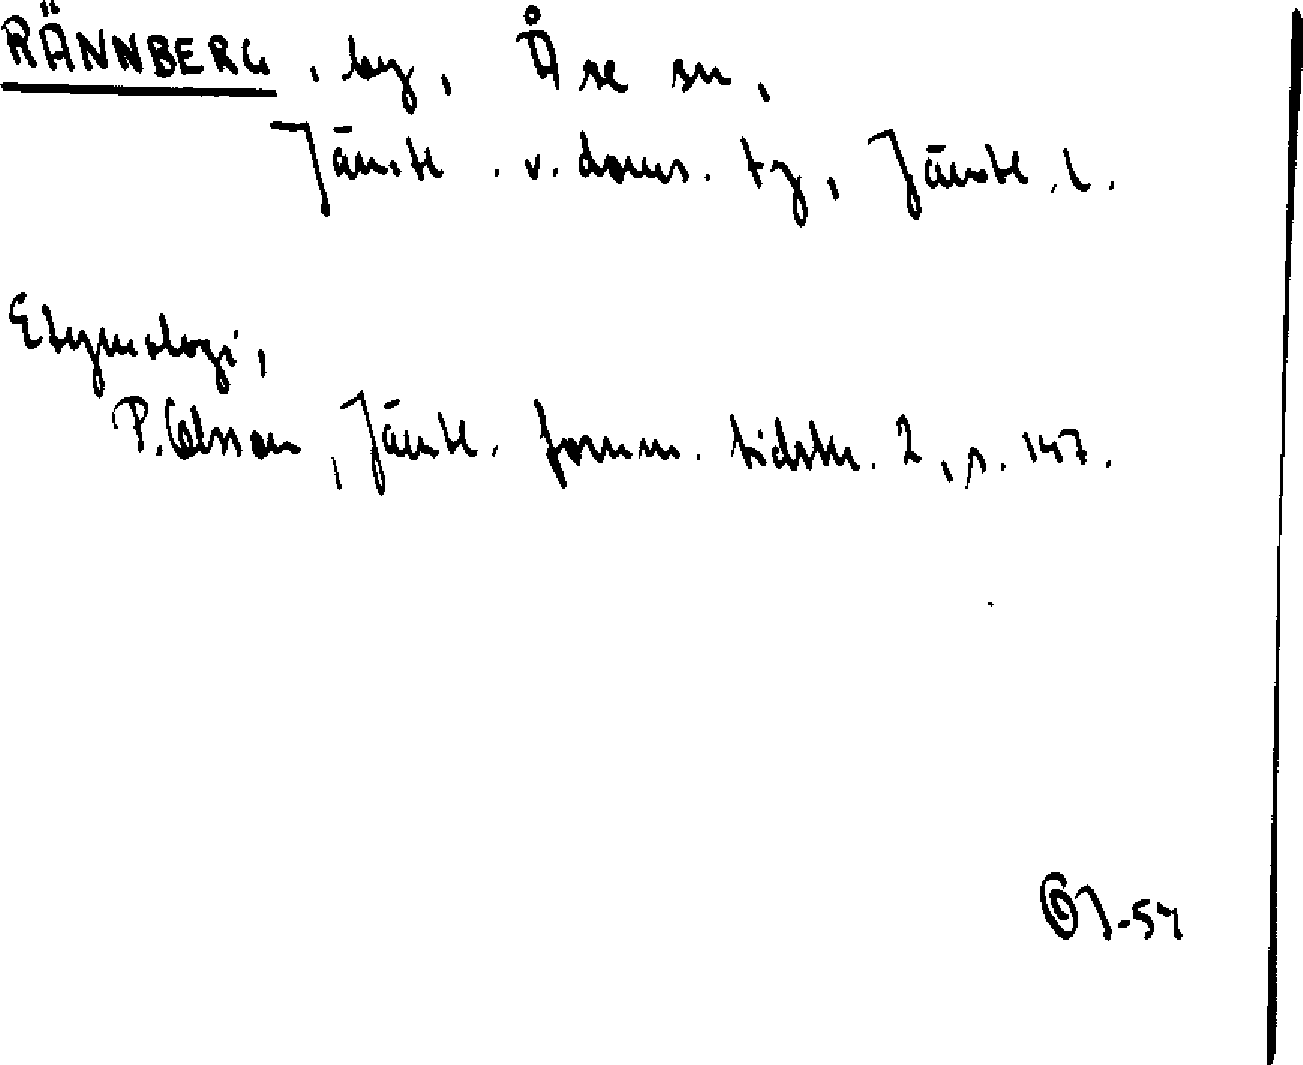 RÄNNBERG, by, Åse sn,
Jämtl. v. doms. tg, Jämtl. l.
Etymologi,
P. Olsson, Jämtl. fornm. tidskr. 2, s. 147.